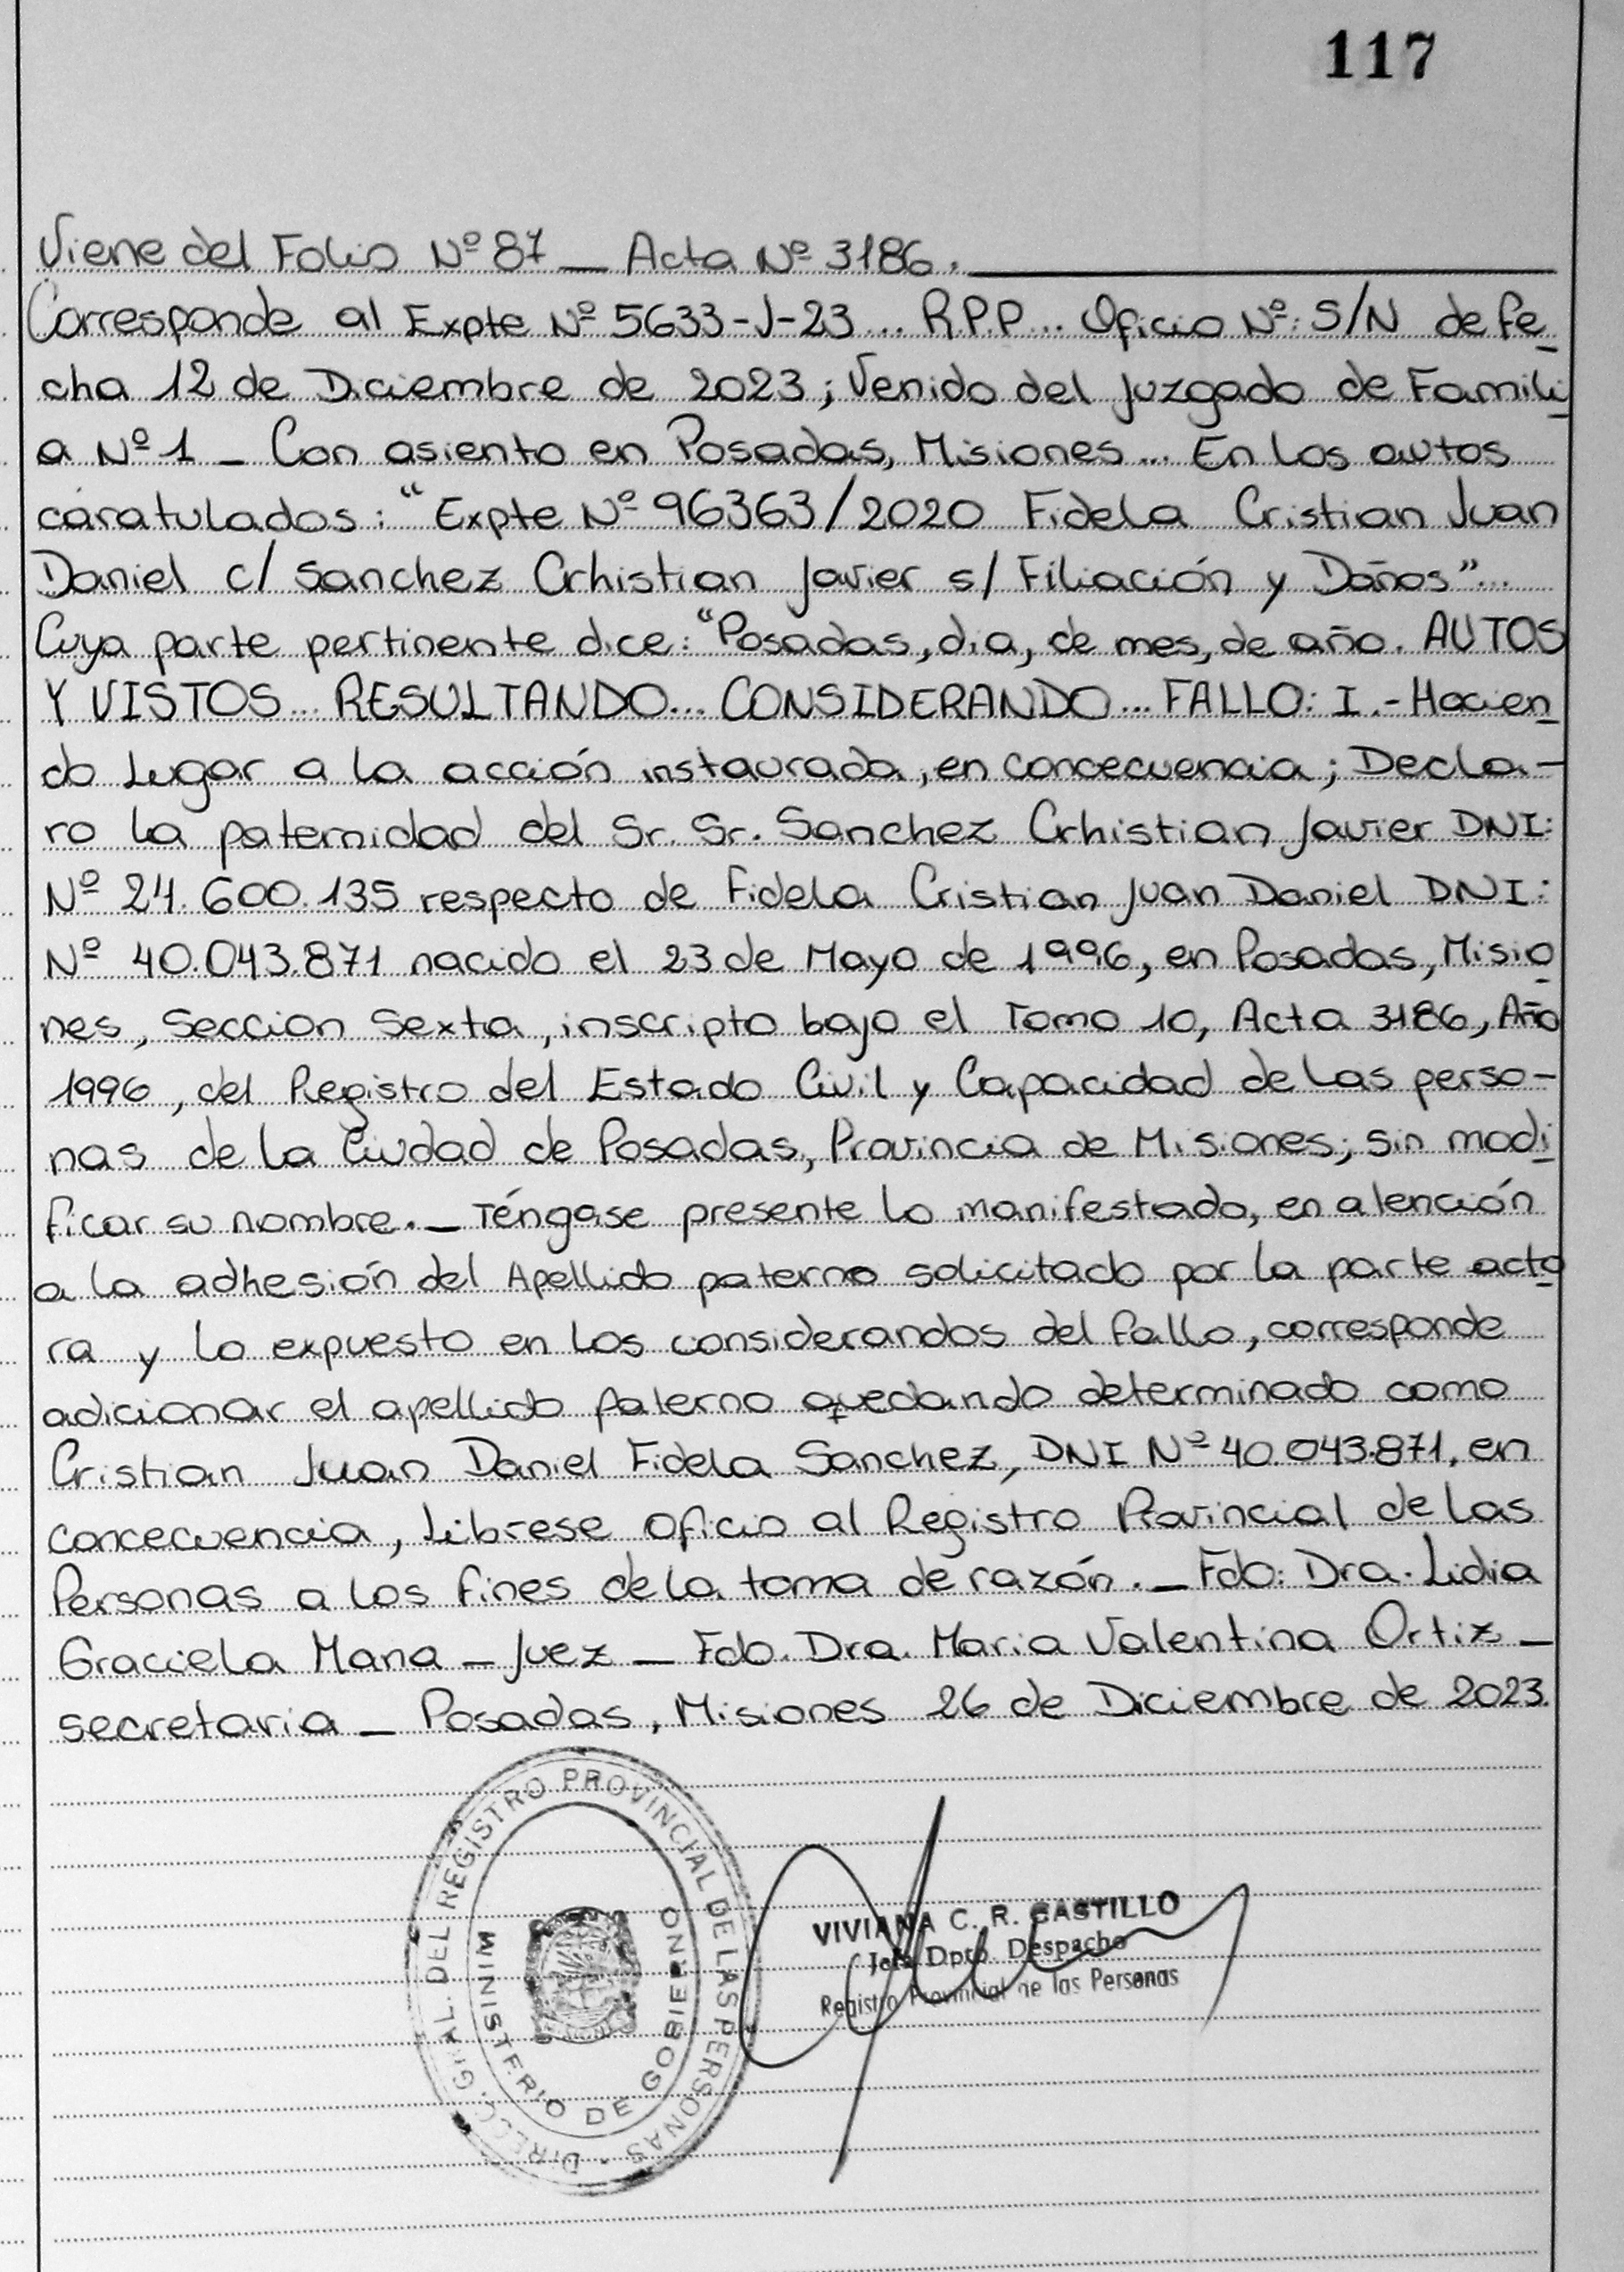 117
Viene del Folio Nº 87 _ Acta Nº 3186.
Corresponde al Expte Nº 5633-J-23... R.P.P... Oficio Nº: S/N de fe_
cha 12 de Diciembre de 2023; Venido del Juzgado de Famili_
a Nº 1 _ Con asiento en Posadas, Misiones... En los autos
caratulados: "Expte Nº 96363/2020 Fidela Cristian Juan
Daniel c/ Sanchez Crhistian Javier s/ Filiación y Daños"...
Cuya parte pertinente dice: "Posadas, dia, de mes, de año. AUTOS
Y VISTOS... RESULTANDO... CONSIDERANDO... FALLO: I.- Hacien_
do Lugar a la acción instaurada, en concecuencia; Decla-
ro la paternidad del Sr. Sr. Sanchez Crhistian Javier DNI:
Nº 24.600.135 respecto de Fidela Cristian Juan Daniel DNI:
Nº 40.043.871 nacido el 23 de Mayo de 1996, en Posadas, Misio_
nes, Seccion Sexta, inscripto bajo el Tomo 10, Acta 3186, Año
1996, del Registro del Estado Civil y Capacidad de las perso-
nas de la Ciudad de Posadas, Provincia de Misiones; sin modi_
ficar su nombre. _ Téngase presente lo manifestado, en atención
a la adhesión del Apellido paterno solicitado por la parte acto_
ra y lo expuesto en los considerandos del fallo, corresponde
adicionar el apellido paterno quedando determinado como
Cristian Juan Daniel Fidela Sanchez, DNI Nº 40.043.871, en
concecuencia, Líbrese oficio al Registro Provincial de las
Personas a los fines de la toma de razón. _ Fdo: Dra. Lidia
Graciela Mana _ Juez _ Fdo. Dra. Maria Valentina Ortiz _
secretaria _ Posadas, Misiones 26 de Diciembre de 2023.
DIRECC. GRAL. DEL REGISTRO PROVINCIAL DE LAS PERSONAS
MINISTERIO DE GOBIERNO
VIVIANA C. R. CASTILLO
Jefa Dpto. Despacho
Registro Provincial de las Personas